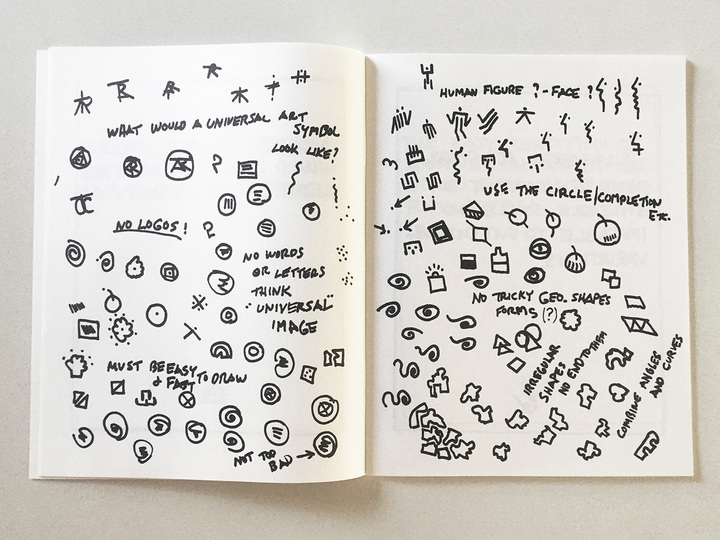 WHAT WOULD A UNIVERSAL ART
SYMBOL
LOOK LIKE?
NO LOGOS!
NO WORDS
OR LETTERS
THINK
"UNIVERSAL"
IMAGE
MUST BE EASY
& FAST TO DRAW
NOT TOO
BAD →
HUMAN FIGURE ? - FACE ?
USE THE CIRCLE/COMPLETION
ETC.
NO TRICKY GEO. SHAPES
FORMS (?)
IRREGULAR
SHAPES
NO END TO THEM
COMBINE ANGLES
AND CURVES